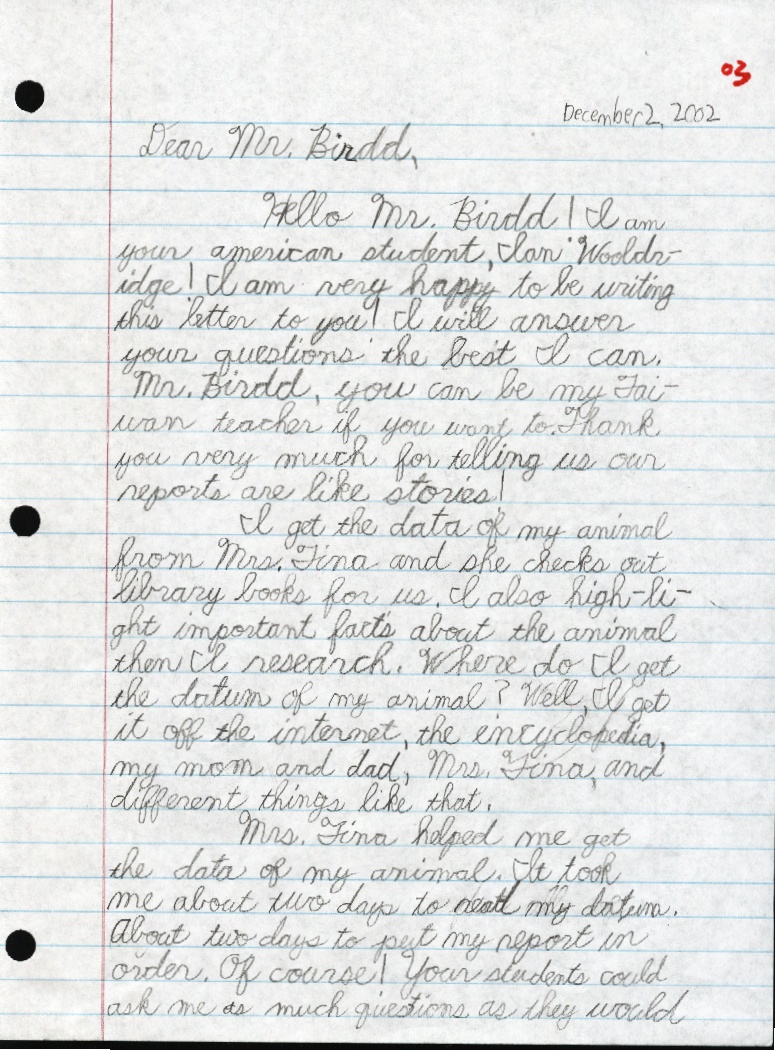 03
December 2, 2002
Dear Mr. Birdd,
Hello Mr. Birdd! I am
your american student, Ian Wooldr-
idge! I am very happy to be writing
this letter to you! I will answer
your questions the best I can.
Mr. Birdd, you can be my Tai-
wan teacher if you want to. Thank
you very much for telling us our
reports are like stories!
I get the data of my animal
from Mrs. Tina and she checks out
library books for us. I also high-li-
ght important facts about the animal
then I research. Where do I get
the datum of my animal? Well, I get
it off the internet, the encyclopedia,
my mom and dad, Mrs. Tina, and
different things like that.
Mrs. Tina helped me get
the data of my animal. It took
me about two days to read my datum.
About two days to put my report in
order. Of course! Your students could
ask me as much questions as they would